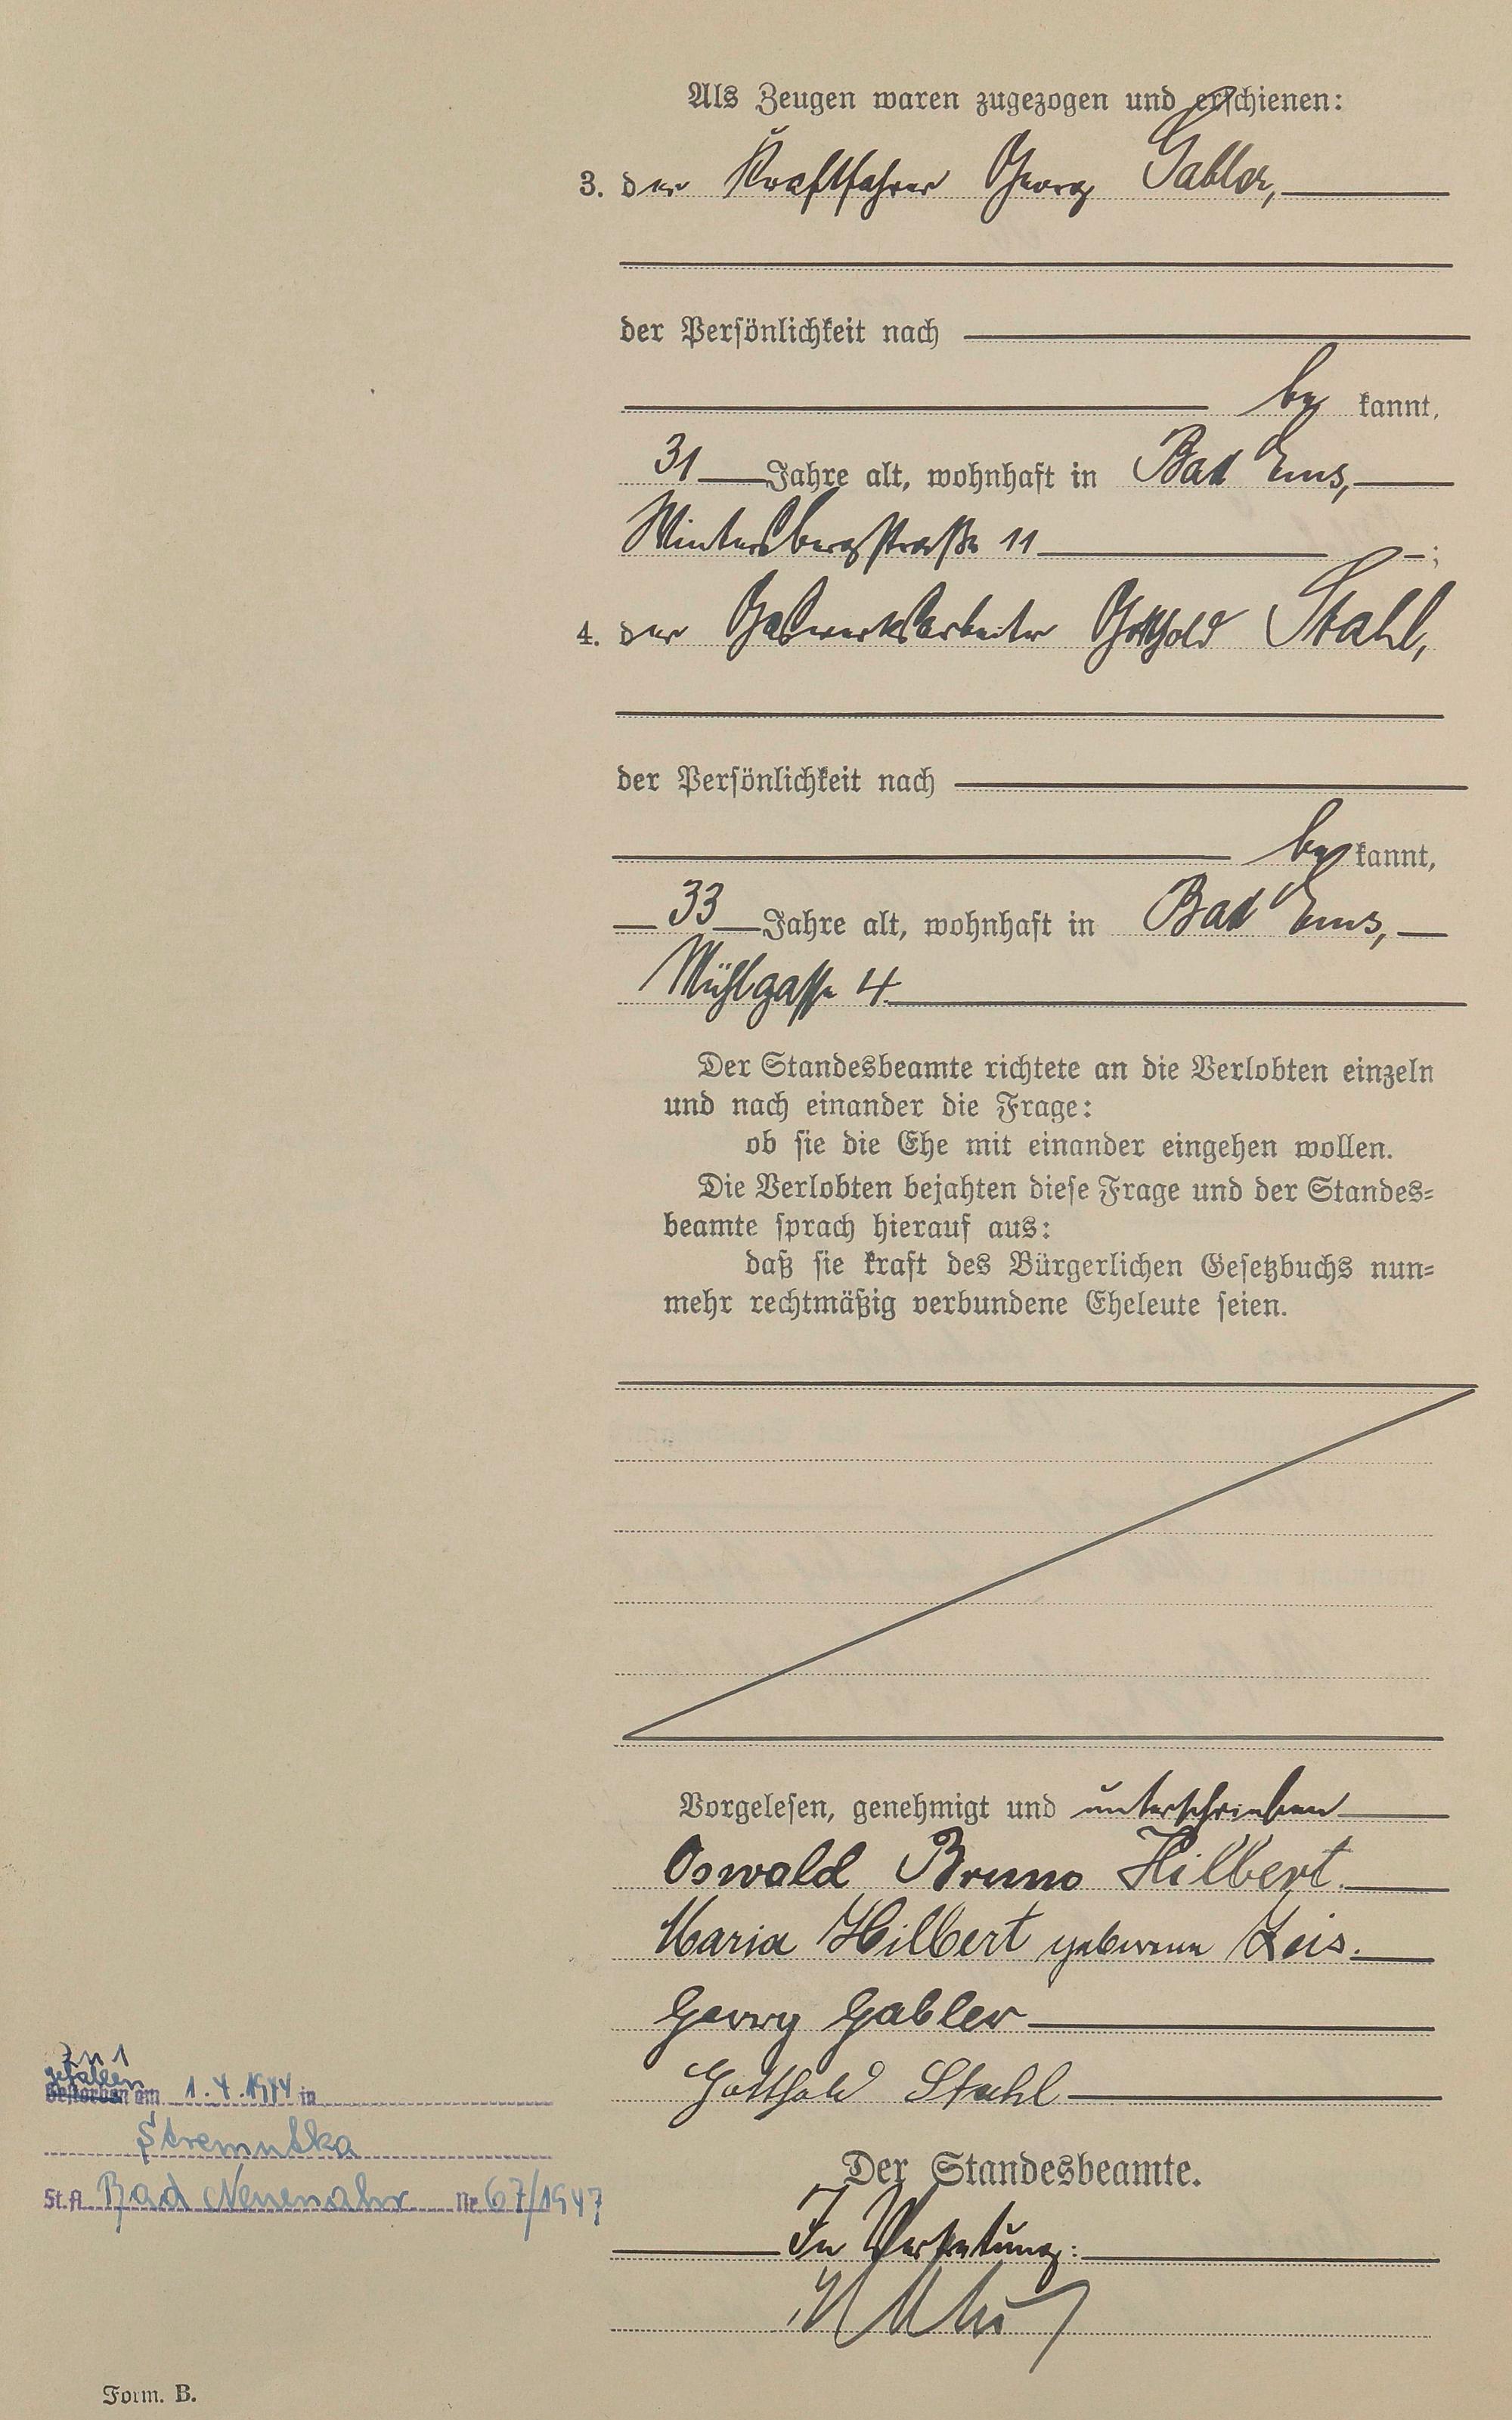 Als Zeugen waren zugezogen und erschienen:
3. der Kraftfahrer Georg Gabler,
der Persönlichkeit nach
be kannt,
31 Jahre alt, wohnhaft in Bad Ems,
Wintersbergstraße 11 ;
4. der Gaswerksarbeiter Gotthold Stahl,
der Persönlichkeit nach
be kannt,
33 Jahre alt, wohnhaft in Bad Ems,
Mühlgasse 4
Der Standesbeamte richtete an die Verlobten einzeln
und nach einander die Frage:
ob sie die Ehe mit einander eingehen wollen.
Die Verlobten bejahten diese Frage und der Standes=
beamte sprach hierauf aus:
daß sie kraft des Bürgerlichen Gesetzbuchs nun=
mehr rechtmäßig verbundene Eheleute seien.
Vorgelesen, genehmigt und unterschrieben
Oswald Bruno Hilbert.
Maria Hilbert geborene Zeis.
Georg Gabler
Gotthold Stahl
Der Standesbeamte.
In Vertretung:
Zu 1
gefallen
Gestorben am 1.4.1944 in
Stremutka
St.A. Bad Neuenahr Nr. 67/1947
Form. B.